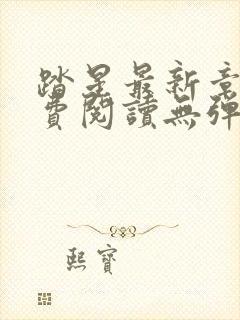 踏星最新章
費閱讀無彈
熙寶